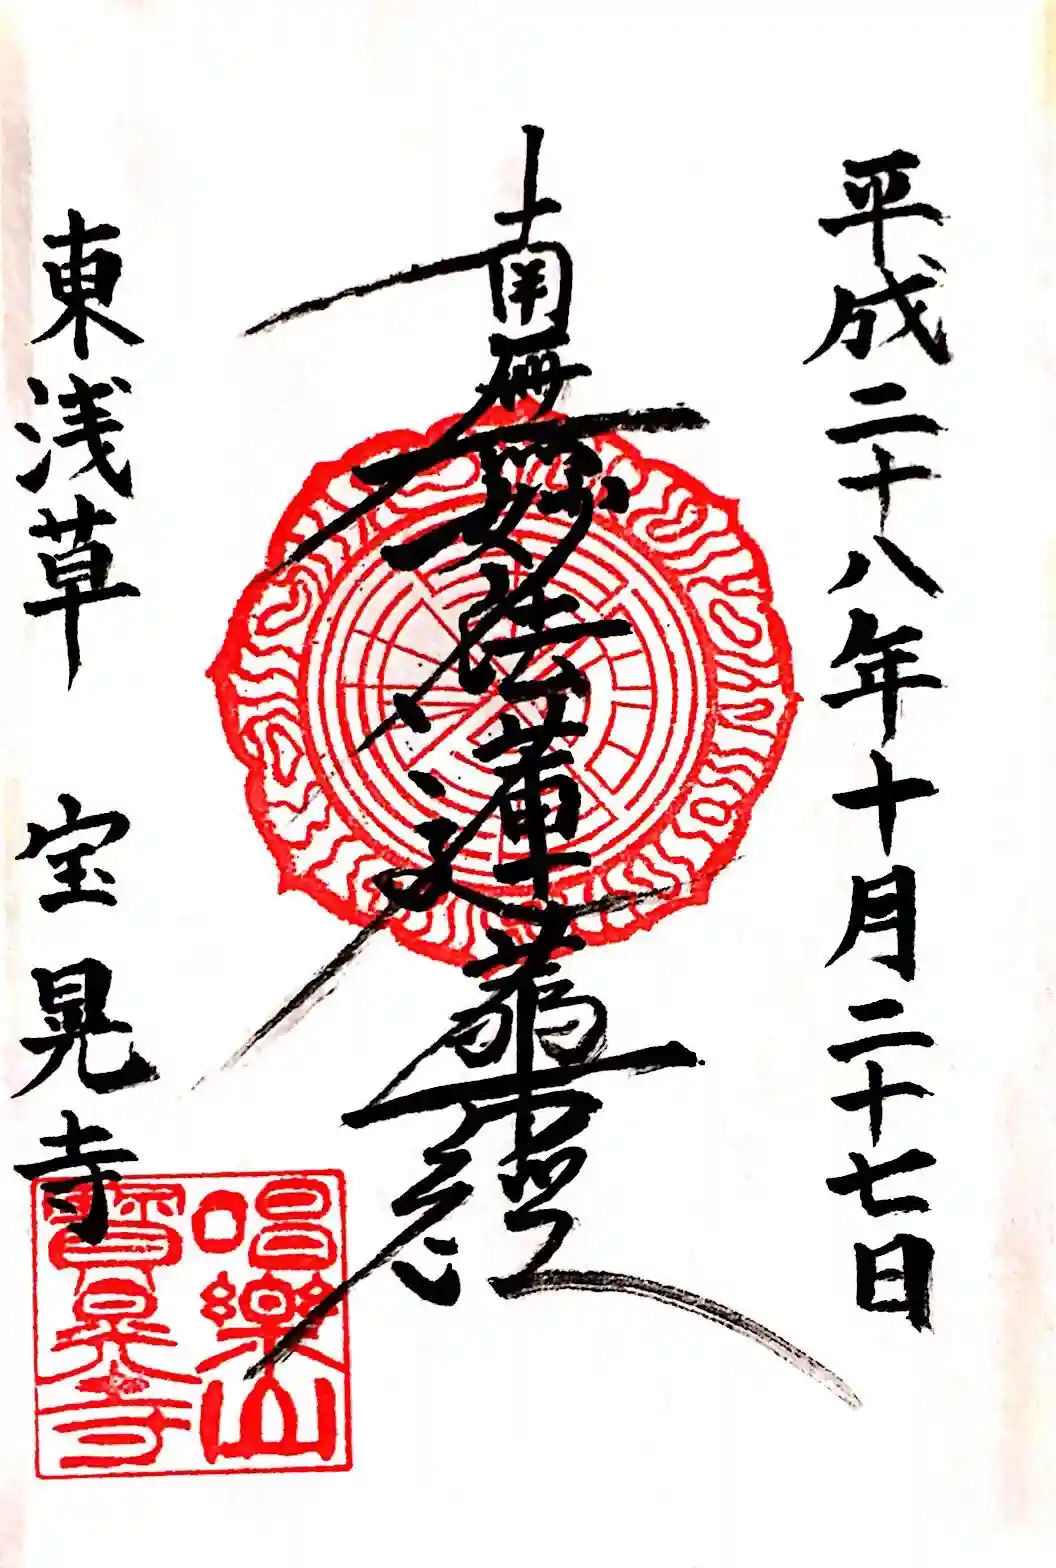 平成二十八年十月二十七日
南無妙法蓮華經
東浅草 宝晃寺
唱樂山
寶晃寺